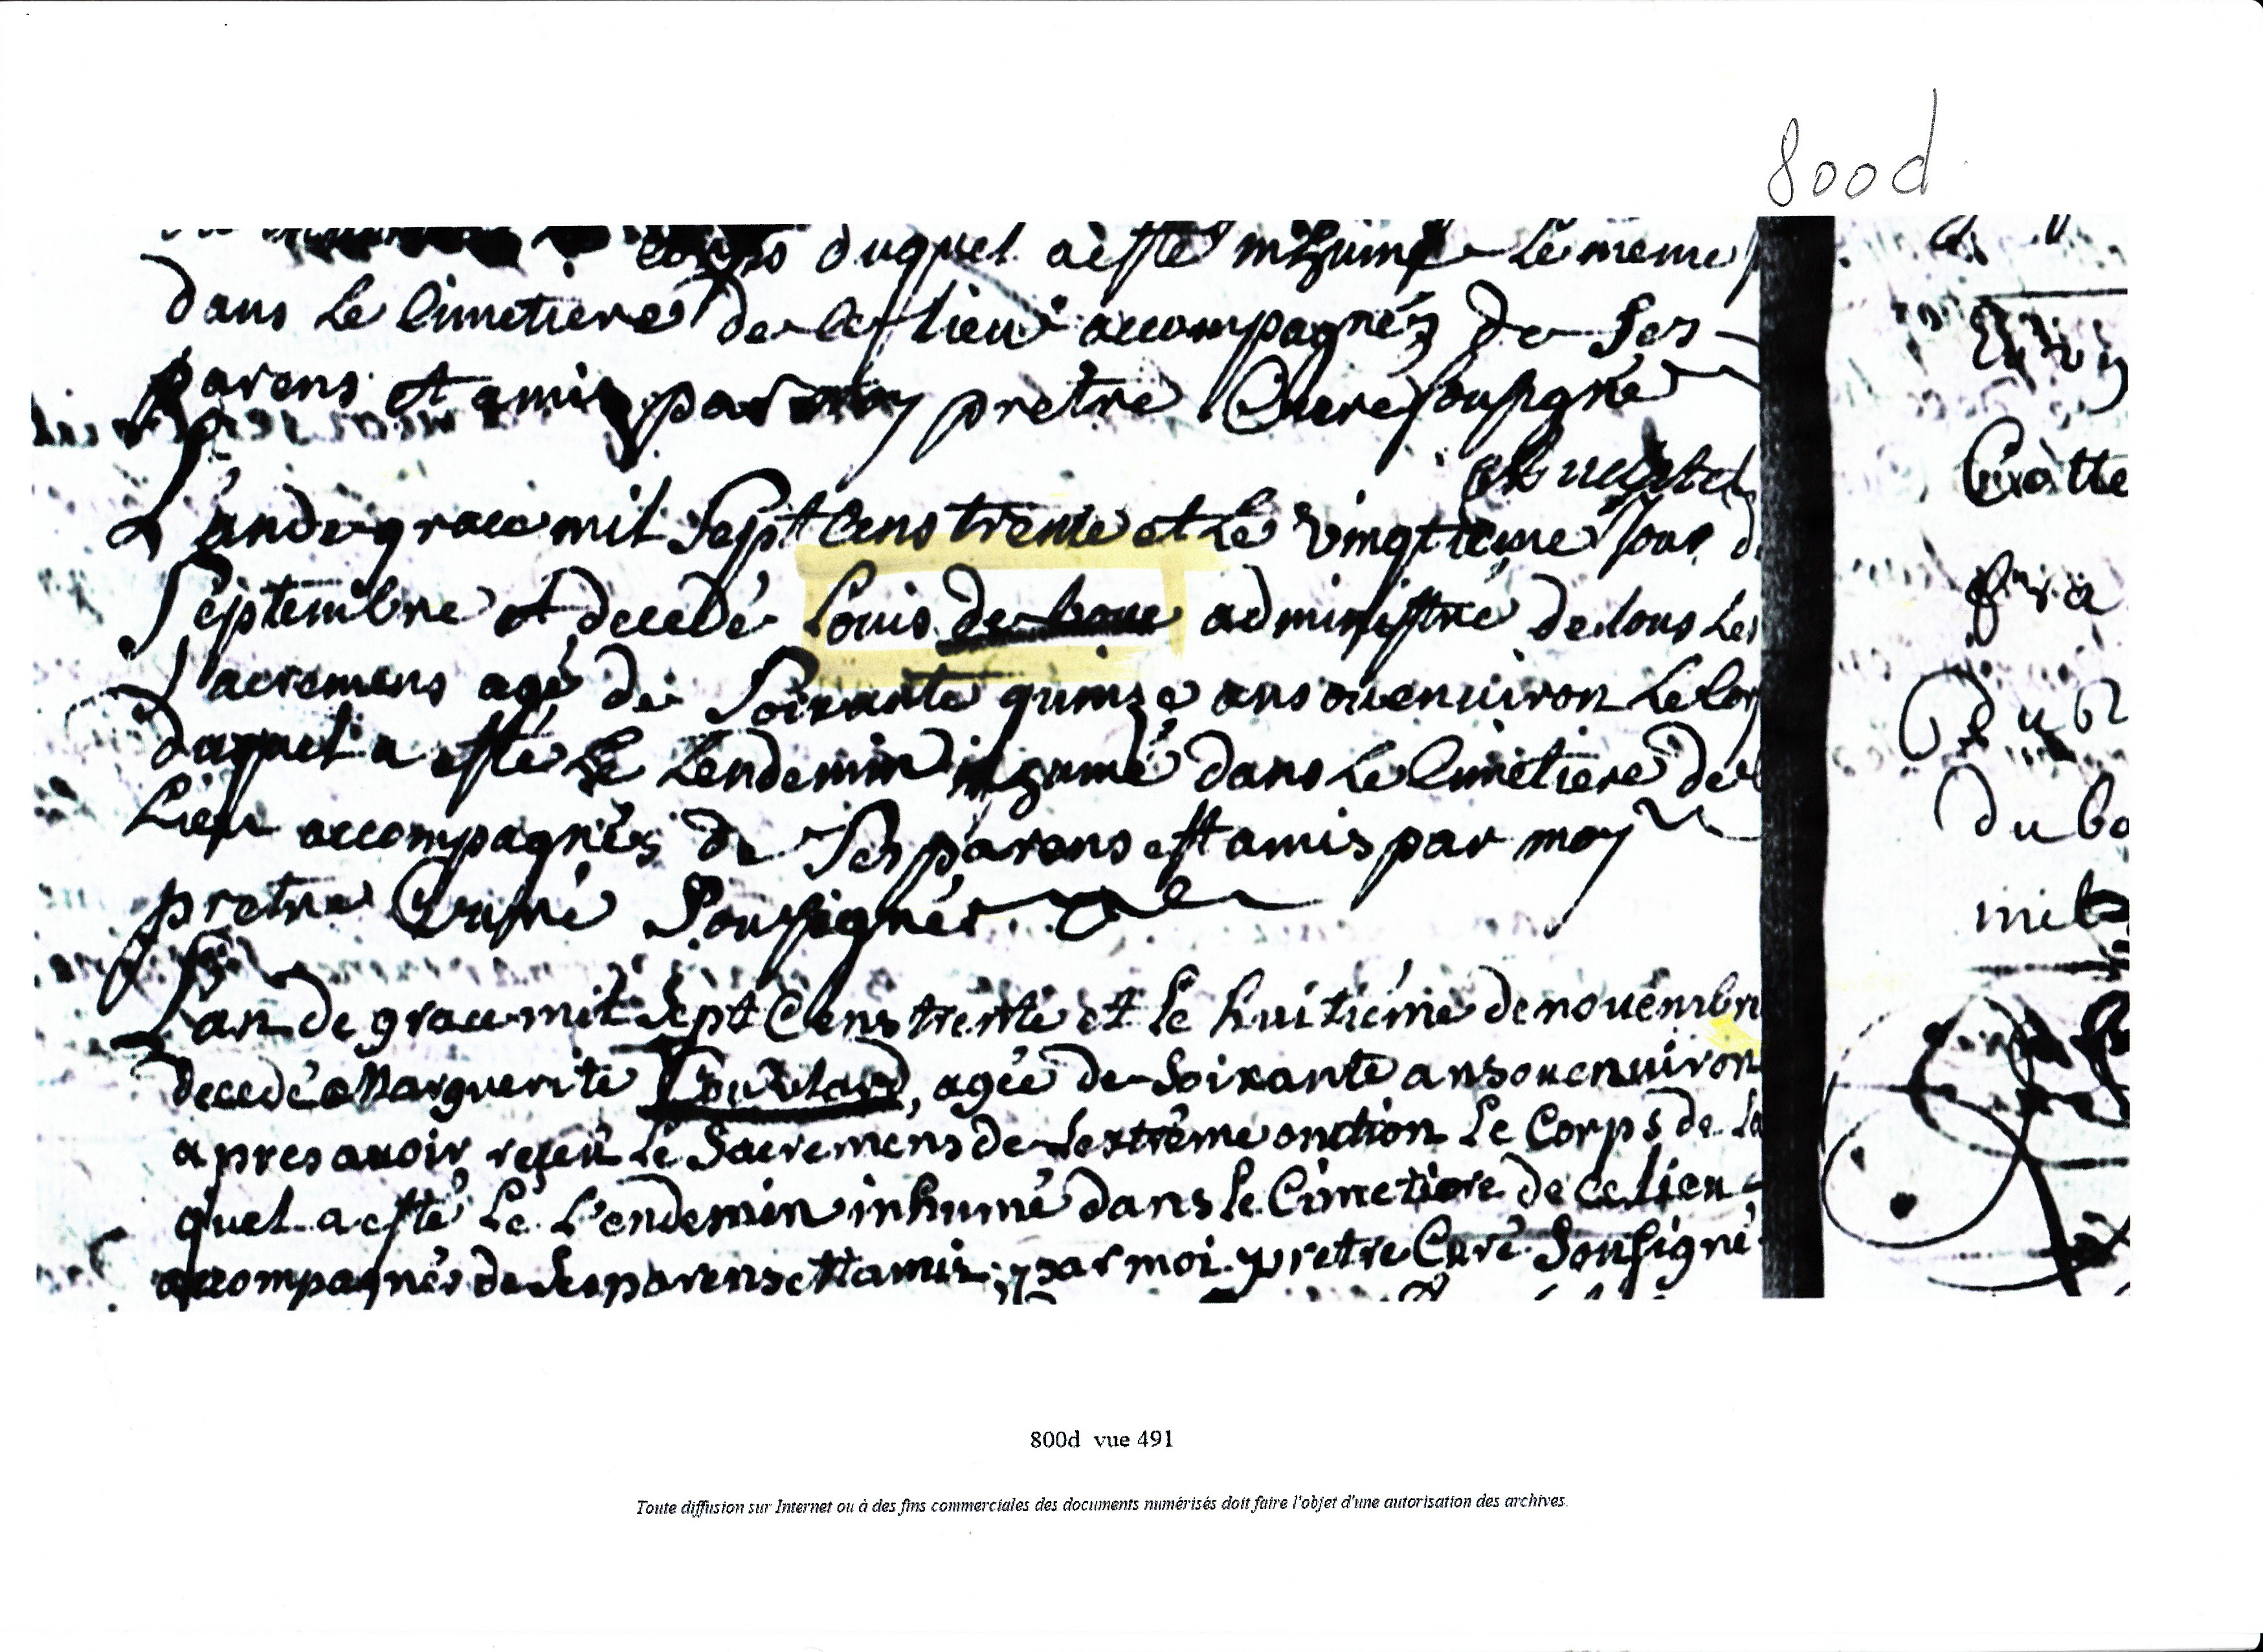 800d
corps duquel a esté inhumé le meme
dans le Cimetiere de ce lieu accompagnéz de ses
parens et amis par moy pretre Curé soussigné
L'an de grace mil sept Cens trente et le vingtieme Jour d
Septembre est decedé Louis de boue administré de tous les
Sacremens agé de Soixante quinze ans ou enuiron le Cor
duquel a esté le Lendemin inhumé dans le Cimetiere de
Lieu accompagnés de ses parens et amis par moy
pretre Curé Soussignés
L'an de grace mil sept Cens trente et le huitiéme de nouembre
decedé Marguerite agée de Soixante ans ou enuiron
apres auoir reçeu le Sacremens de Lextrême onction le Corps de La
quel a esté le L'endemin inhumé dans le Cimetiere de ce lieu
accompagnés de ses parens et amis par moi pretre Curé Sousigné
800d vue 491
Toute diffusion sur Internet ou à des fins commerciales des documents numérisés doit faire l'objet d'une autorisation des archives.